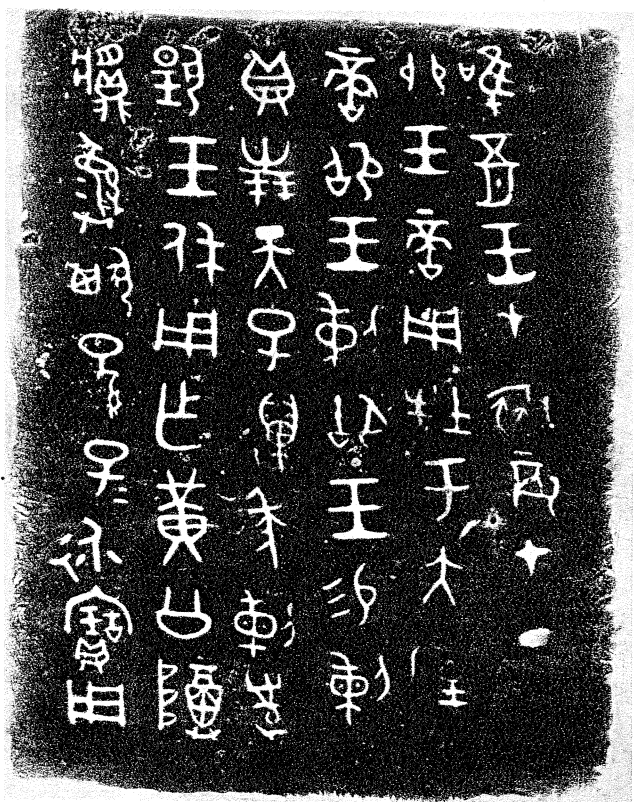 唯五月王才初辰才丁
卯王啻用牡于大室
啻卲王剌御王易剌
貝卅朋天子萬年剌對
揚王休用乍黃公尊
䵼彝其孫=子=永寶用